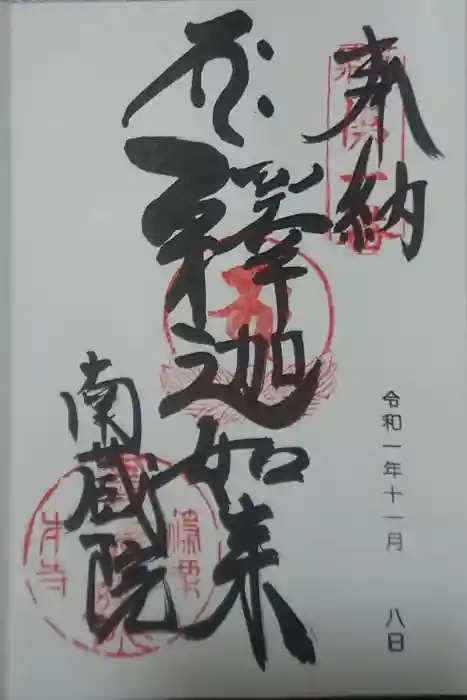 奉納
釋迦如来
南蔵院
令和一年十一月 八日